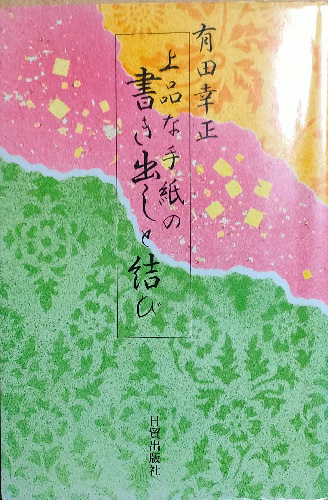 有田幸正
上品な手紙の
書き出しと結び
日貿出版社